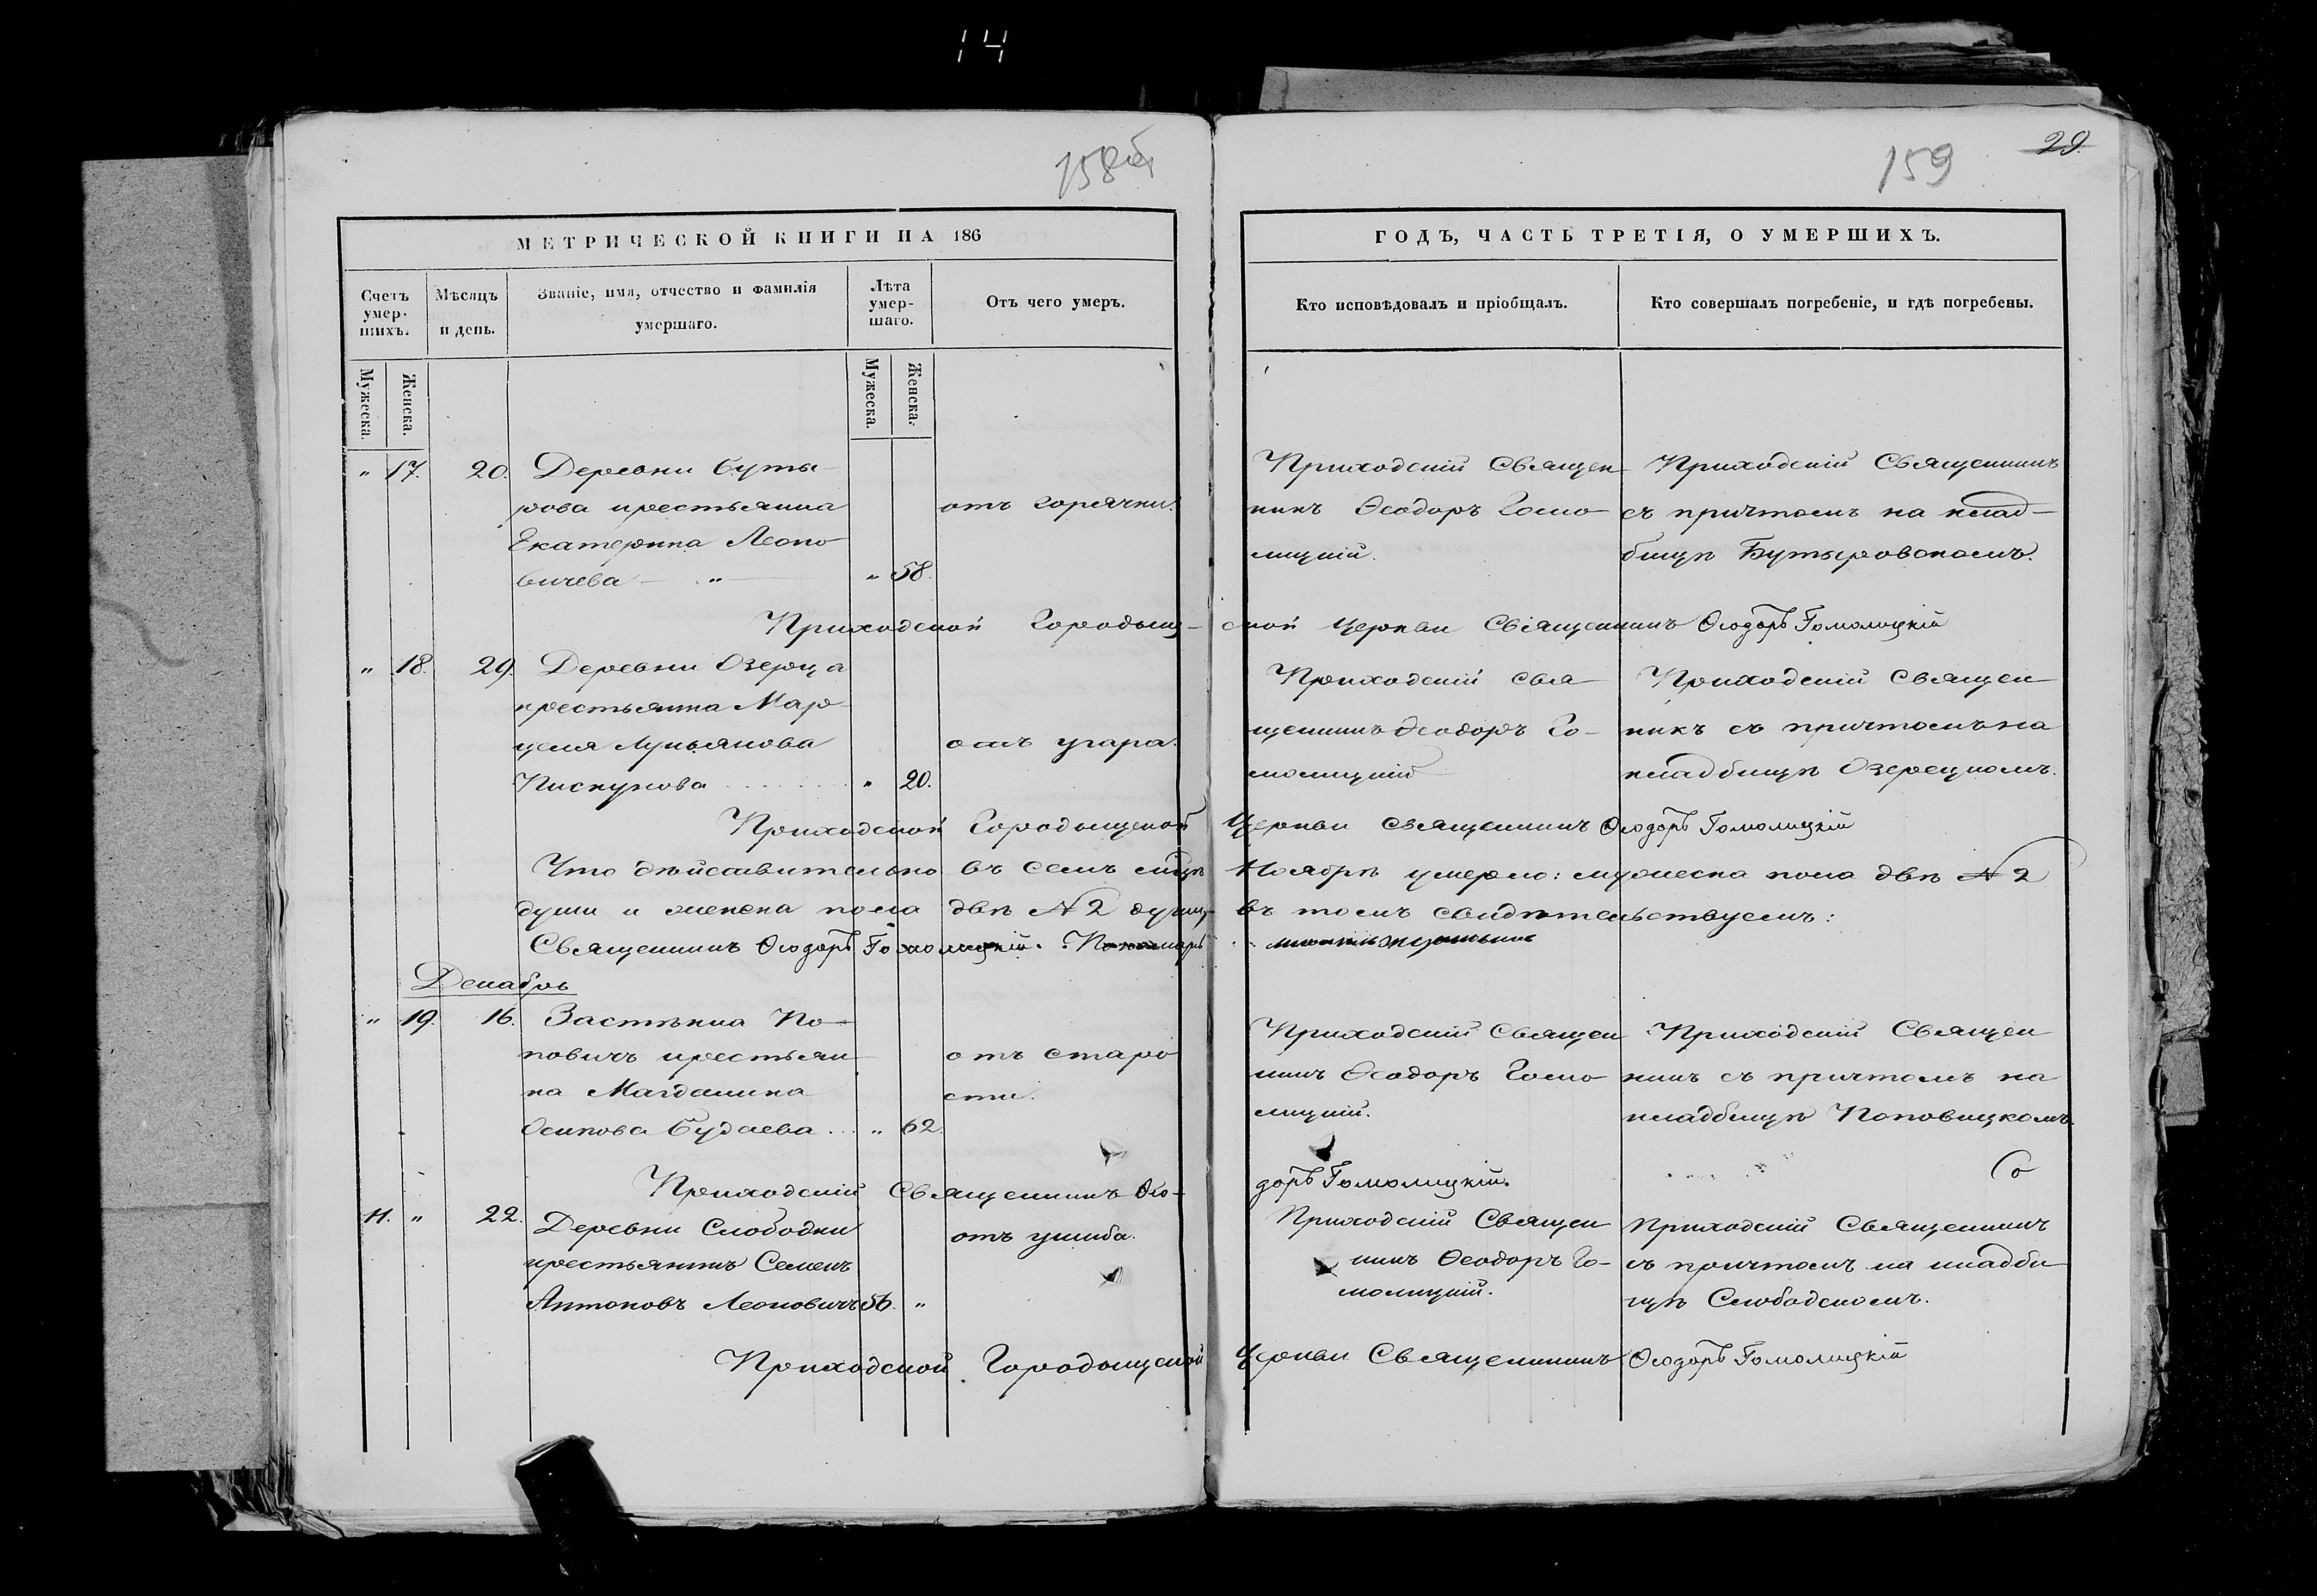 14
158об
159
29.
МЕТРИЧЕСКОЙ КНИГИ НА 186
ГОДЪ, ЧАСТЬ ТРЕТІЯ, О УМЕРШИХЪ.
Счетъ умер-
шихъ.
Мѣсяцъ
и день.
Званіе, имя, отчество и фамилія
умершаго.
Лѣта
умер-
шаго.
Отъ чего умеръ.
Кто исповѣдовалъ и пріобщалъ.
Кто совершалъ погребеніе, и гдѣ погребены.
Мужеска.
Женска.
Мужеска.
Женска.
" 17. 20. Деревни Буты-
рова крестьянка
Екатерина Леоно-
вичева — " — " 58.
отъ горячки.
Приходскій Священ-
никъ Ѳеодоръ Гомо-
лицкій.
Приходскій Священникъ
съ причтомъ на клад-
бищѣ Бутыровскомъ.
Приходской Городыщ-
ской Церкви Священникъ Ѳеодоръ Гомолицкій
" 18. 29. Деревни Озерца
крестьянка Мар-
целя Лукьянова
Пискунова " 20.
отъ угара.
Приходскій Свя-
щенникъ Ѳеодоръ Го-
молицкій
Приходскій Священ-
никъ съ причтомъ на
кладбищѣ Озерецкомъ.
Приходской Городыщской Церкви Священникъ Ѳеодоръ Гомолицкій
Что дѣйствительно въ семъ мцѣ Ноябрѣ умерло: мужеска пола двѣ № 2
души и женска пола двѣ № 2 души, въ томъ свидѣтельствуемъ:
Священникъ Ѳеодоръ Гомолицкій. Пономарь
Декабрь
" 19. 16. Застѣнка По-
повичъ крестьян-
ка Магдалина
Осипова Будаева " 62.
отъ старо
сти.
Приходскій Священ
никъ Ѳеодоръ Гомо
лицкій.
Приходскій Священ
никъ съ причтомъ на
кладбищѣ Поповицкомъ.
Приходскій Священникъ Ѳео-
доръ Гомолицкій.
11. " 22. Деревни Слободки
крестьянинъ Семенъ
Антоновъ Леоновичъ 56. "
отъ ушиба.
Приходскій Священ
никъ Ѳеодоръ Го-
молицкій.
Приходскій Священникъ
съ причтомъ на кладби
щѣ Слободскомъ.
Приходской Городыщской Церкви Священникъ Ѳеодоръ Гомолицкій